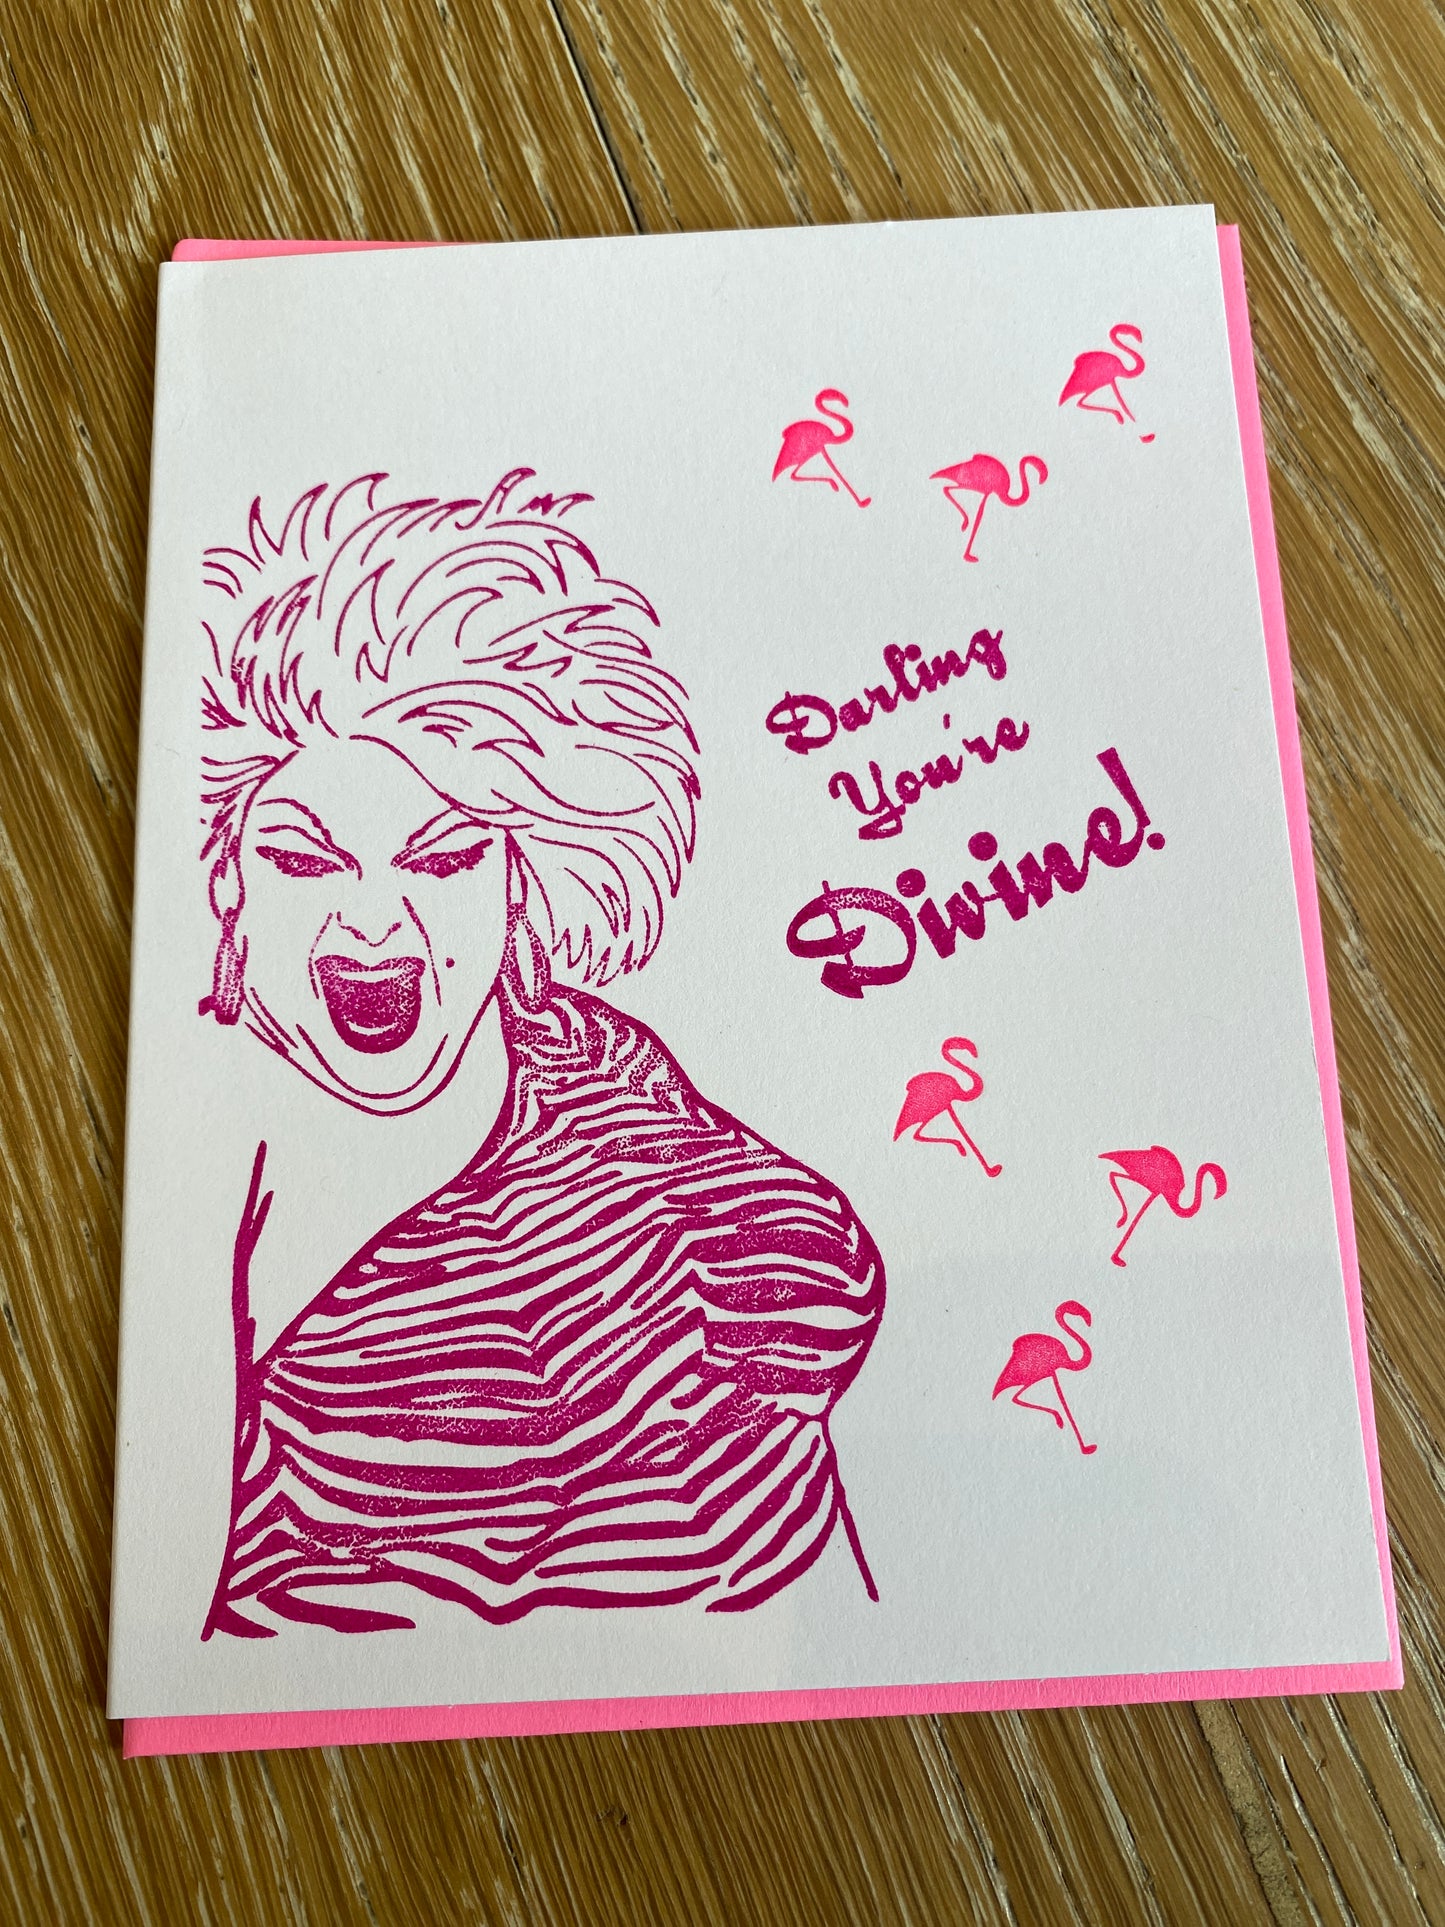 Darling
You're
Divine!